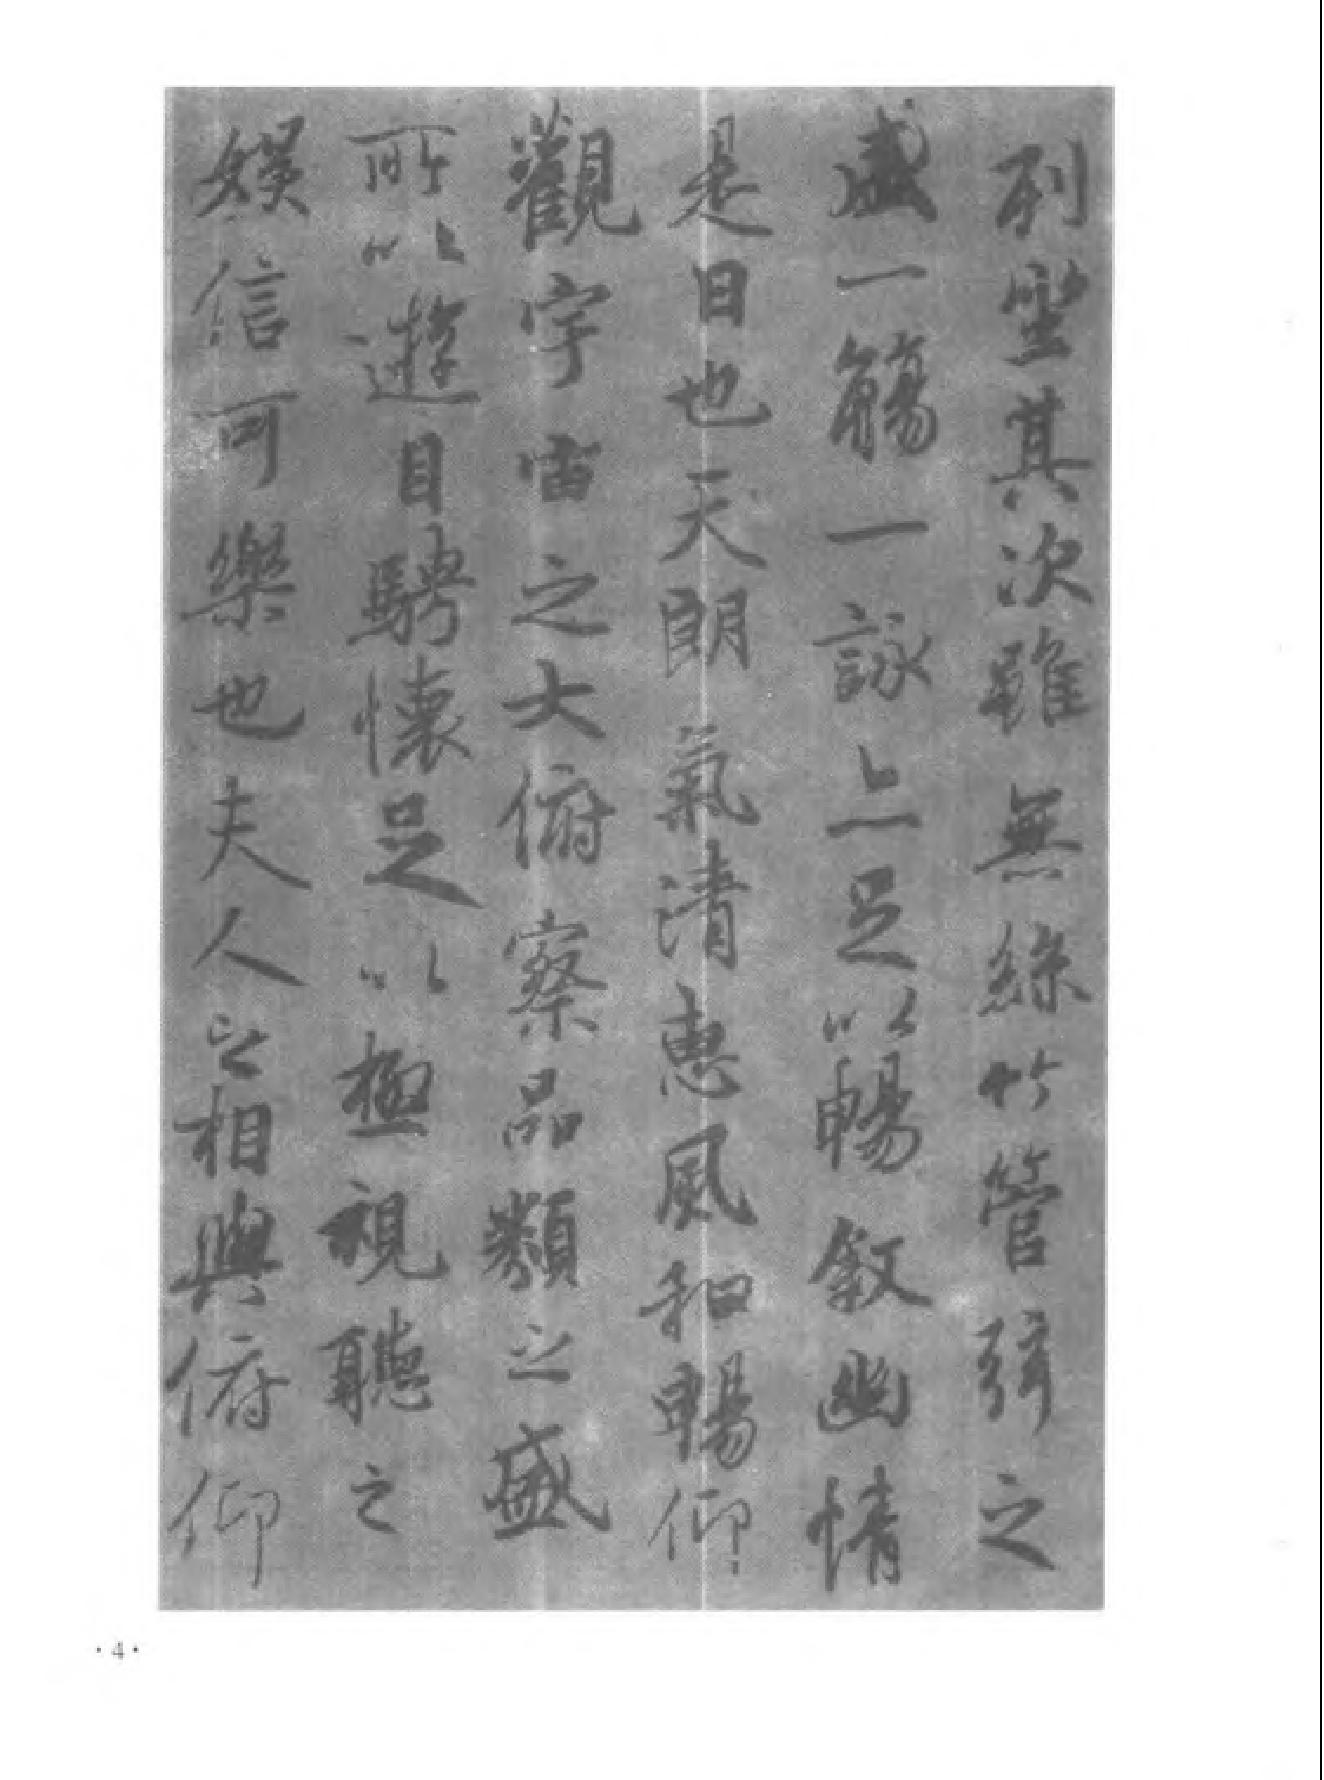 列坐其次雖無絲竹管弦之
盛一觴一詠亦足以暢敘幽情
是日也天朗氣清惠風和暢仰
觀宇宙之大俯察品類之盛
所以遊目騁懷足以極視聽之
娛信可樂也夫人之相與俯仰
·4·